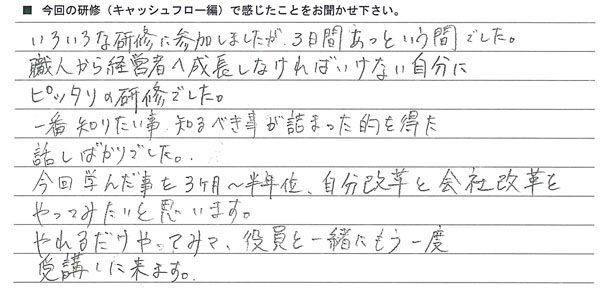 ■ 今回の研修（キャッシュフロー編）で感じたことをお聞かせ下さい。
いろいろな研修に参加しましたが、3日間あっという間でした。
職人から経営者へ成長しなければいけない自分に
ピッタリの研修でした。
一番知りたい事、知るべき事が詰まった的を得た
話しばかりでした。
今回学んだ事を3ヶ月〜半年位、自分改革と会社改革を
やってみたいと思います。
やれるだけやってみて、役員と一緒にもう一度
受講しに来ます。